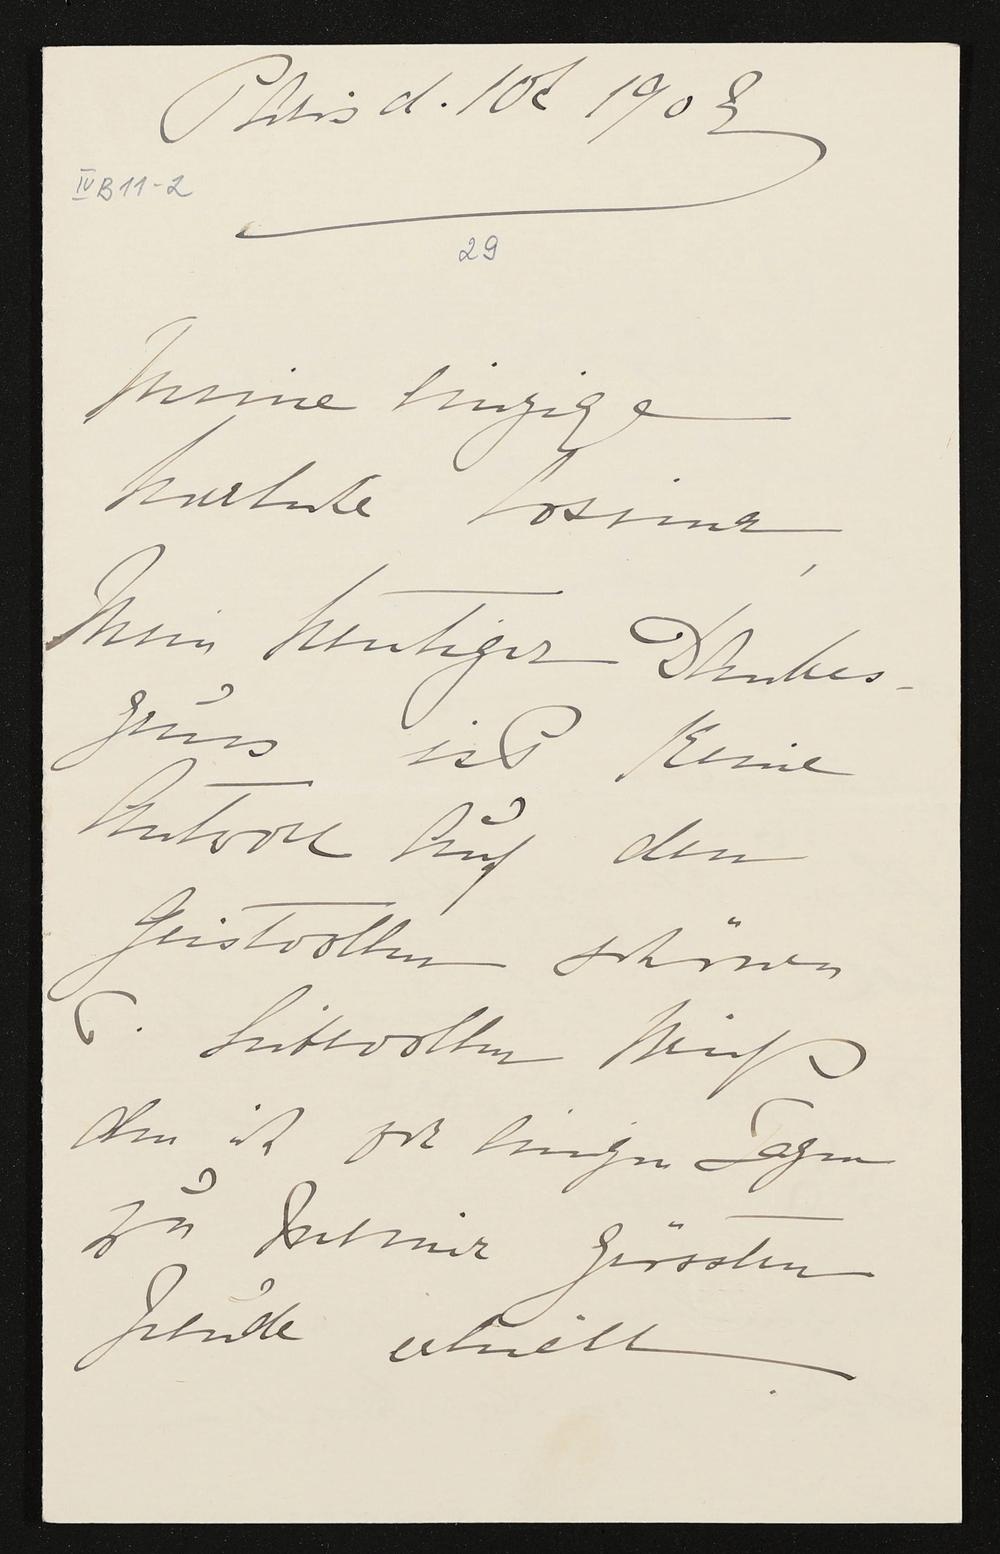 Paris d. 10t 1902
IV B 11-2
29
Meine einzige
verehrte Cosima,
Mein heutiger Dankes-
gruss ist keine
Antwort auf den
geistvollen schönen
u. liebevollen Brief
den ich vor einigen Tagen
zu meiner grössten
Freude erhielt.